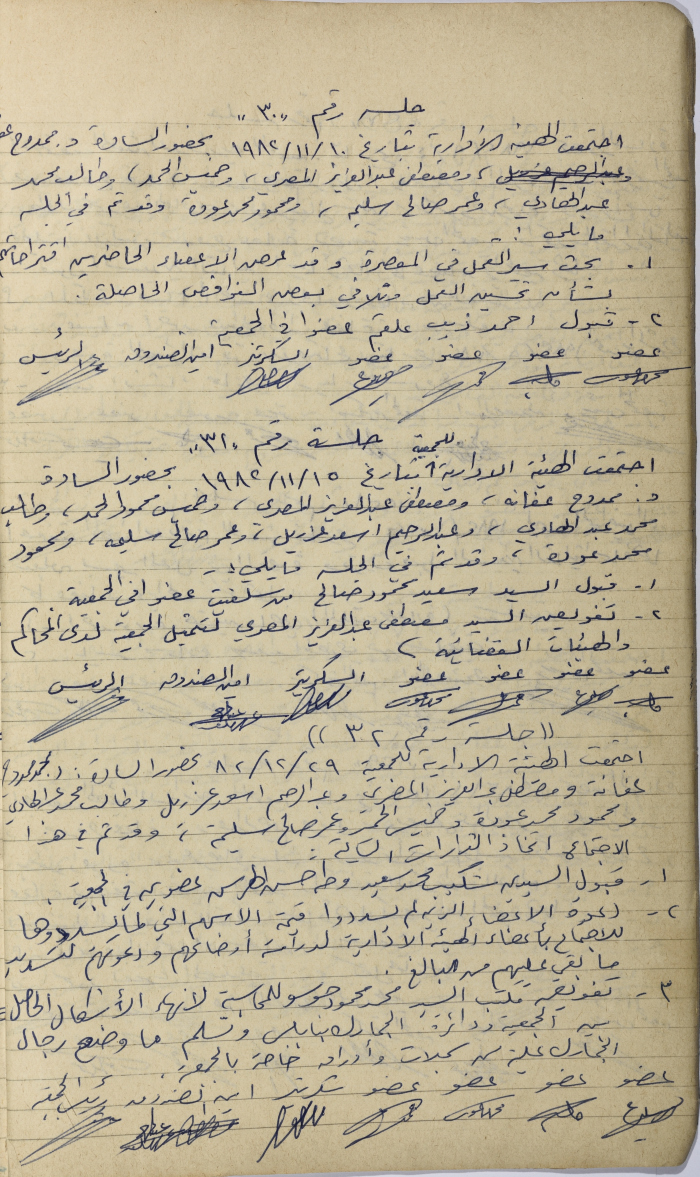 جلسه رقم "٣٠"
اجتمعت الهيئة الادارية بتاريخ ١٩٨٢/١١/١٠ بحضور السادة د. ممدوح
وعبدالرحيم عزريل، ومصطفى عبدالعزيز المصري، وخميس الحمد، وطالب محمد
عبدالهادي، وعمر صالح سليم، ومحمود محمد عودة وقد تم في الجلسه
ما يلي:
١- بحث سير العمل في المعصرة وقد عرض الاعضاء الحاضرين اقتراحاتهم
بشأن تحسين العمل وتلافي بعض النواقص الحاصلة.
٢- قبول احمد ذيب علقم عضوا في الجمعية.
عضو عضو عضو عضو السكرتير امين الصندوق الرئيس
جلسة رقم "٣١"
اجتمعت الهيئة الادارية للجمعية بتاريخ ١٩٨٢/١١/١٥ بحضور السادة
د. ممدوح عفانه، ومصطفى عبدالعزيز المصري، وخميس محمود الحمد، وطالب
محمد عبدالهادي، وعبدالرحيم اسعد عزريل، وعمر صالح سليمه، ومحمود
محمد عودة، وقد تم في الجلسه ما يلي:-
١- قبول السيد سعيد محمود صالح من سلفيت عضوا في الجمعية.
٢- تفويض السيد مصطفى عبدالعزيز المصري لتمثيل الجمعية لدى المحاكم
والهيئات القضائية
عضو عضو عضو عضو السكرتير امين الصندوق الرئيس
((جلسة رقم ٣٢))
اجتمعت الهيئة الادارية للجمعية ٨٢/١٢/٢٩ بحضور السادة:
عفانة ومصطفى عبدالعزيز المصري وعبدالرحيم اسعد عزريل وطالب محمد عبدالهادي
ومحمود محمد عودة وخميس الحمد وعمر صالح سليمة، وقد تم في هذا
الاجتماع اتخاذ القرارات التالية:
١- قبول السيدين شكيب محمد سعيد وطه حسن عضوين في الجمعية.
٢- دعوة الاعضاء الذين لم يسددوا قيمة الاسهم التي لما يسددوها
للاجتماع بأعضاء الهيئة الادارية لدراسة أوضاعهم ودعوتهم لتسديد
ما بقي عليهم من المبالغ.
٣- تفويض مكتب السيد محمد محمود حوسو للمحاسبة لانهاء الأشكال الحاصل
بين الجمعية ودائرة الجمارك بنابلس وتسلم ما وضع رجال
الجمارك عليه من سجلات وأوراق خاصة بالجمعية.
عضو عضو عضو عضو سكرتير امين الصندوق رئيس